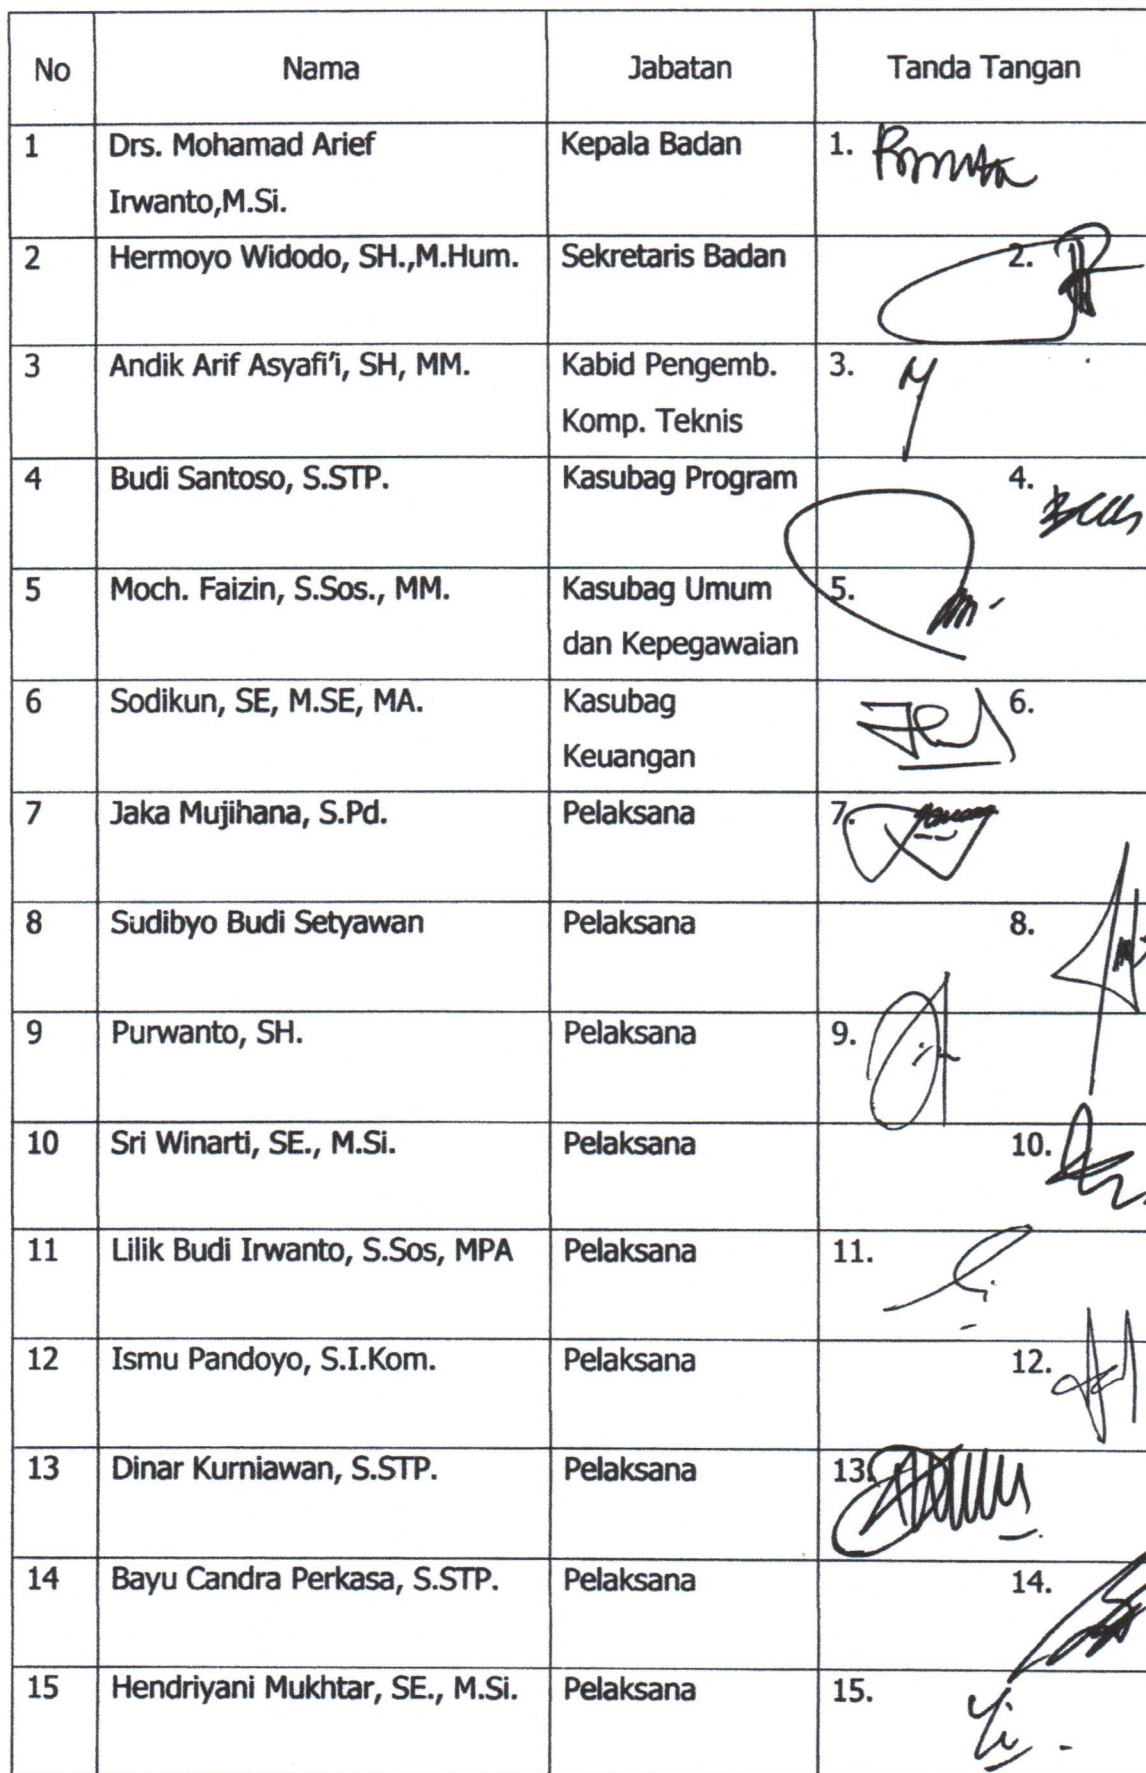 No Nama Jabatan Tanda Tangan
1 Drs. Mohamad Arief Kepala Badan 1.
Irwanto,M.Si.
2 Hermoyo Widodo, SH.,M.Hum. Sekretaris Badan 2.
3 Andik Arif Asyafi'i, SH, MM. Kabid Pengemb. 3.
Komp. Teknis
4 Budi Santoso, S.STP. Kasubag Program 4.
5 Moch. Faizin, S.Sos., MM. Kasubag Umum 5.
dan Kepegawaian
6 Sodikun, SE, M.SE, MA. Kasubag 6.
Keuangan
7 Jaka Mujihana, S.Pd. Pelaksana 7.
8 Sudibyo Budi Setyawan Pelaksana 8.
9 Purwanto, SH. Pelaksana 9.
10 Sri Winarti, SE., M.Si. Pelaksana 10.
11 Lilik Budi Irwanto, S.Sos, MPA Pelaksana 11.
12 Ismu Pandoyo, S.I.Kom. Pelaksana 12.
13 Dinar Kurniawan, S.STP. Pelaksana 13.
14 Bayu Candra Perkasa, S.STP. Pelaksana 14.
15 Hendriyani Mukhtar, SE., M.Si. Pelaksana 15.